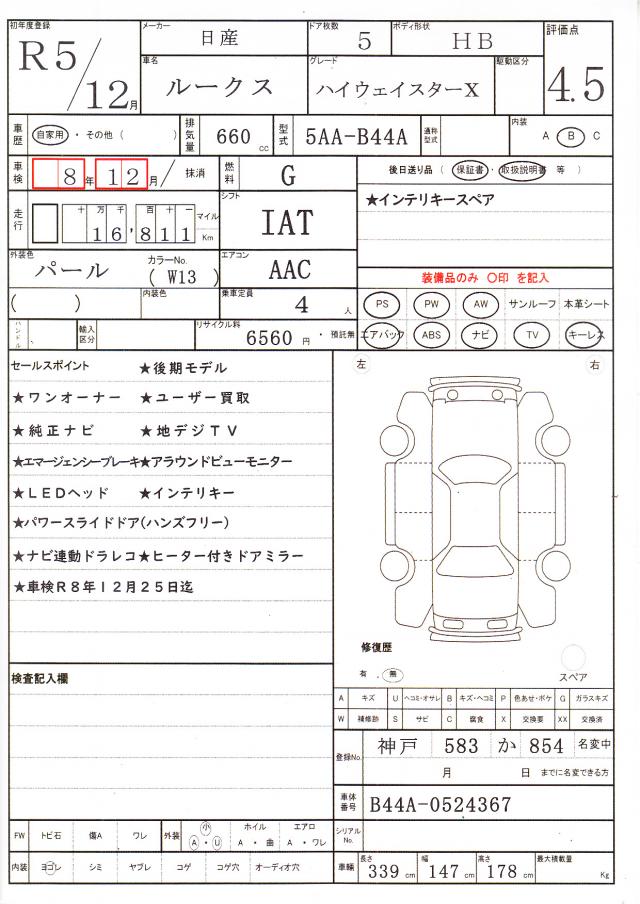 初年度登録 R5/12月 メーカー 日産 ドア枚数 5 ボディ形状 HB 評価点 4.5
車名 ルークス グレード ハイウェイスターX 駆動区分
車歴 自家用・その他 ( ) 排気量 660 cc 型式 5AA-B44A 通称型式 内装 A B C
車検 8年 12月/ 抹消 燃料 G 後日送り品 ( 保証書・取扱説明書 等 )
走行 十万千百十一 16,811 マイル Km シフト IAT ★インテリキースペア
外装色 パール カラーNo. (W13) エアコン AAC 装備品のみ 〇印 を記入
( ) 内装色 乗車定員 4 人 PS PW AW サンルーフ 本革シート
ハンドル 輸入区分 リサイクル料 6560 円・預託無 エアバック ABS ナビ TV キーレス
セールスポイント ★後期モデル 左 右
★ワンオーナー ★ユーザー買取
★純正ナビ ★地デジTV
★エマージェンシーブレーキ★アラウンドビューモニター
★LEDヘッド ★インテリキー
★パワースライドドア(ハンズフリー)
★ナビ連動ドラレコ★ヒーター付きドアミラー
★車検R8年12月25日迄
修復歴
有 . 無 スペア
検査記入欄
A キズ U ヘコミ・オサレ B キズ・ヘコミ P 色あせ・ボケ G ガラスキズ
W 補修跡 S サビ C 腐食 X 交換要 XX 交換済
登録No. 神戸 583 か 854 名変中
月 日 までに名変できる方
車体番号 B44A-0524367
FW トビ石 傷A ワレ 外装 小 A・U ホイル A・曲 エアロ A・ワレ シリアルNo.
内装 ヨゴレ シミ ヤブレ コゲ コゲ穴 オーディオ穴 車輛 長さ 339 cm 幅 147 cm 高さ 178 cm 最大積載量 Kg